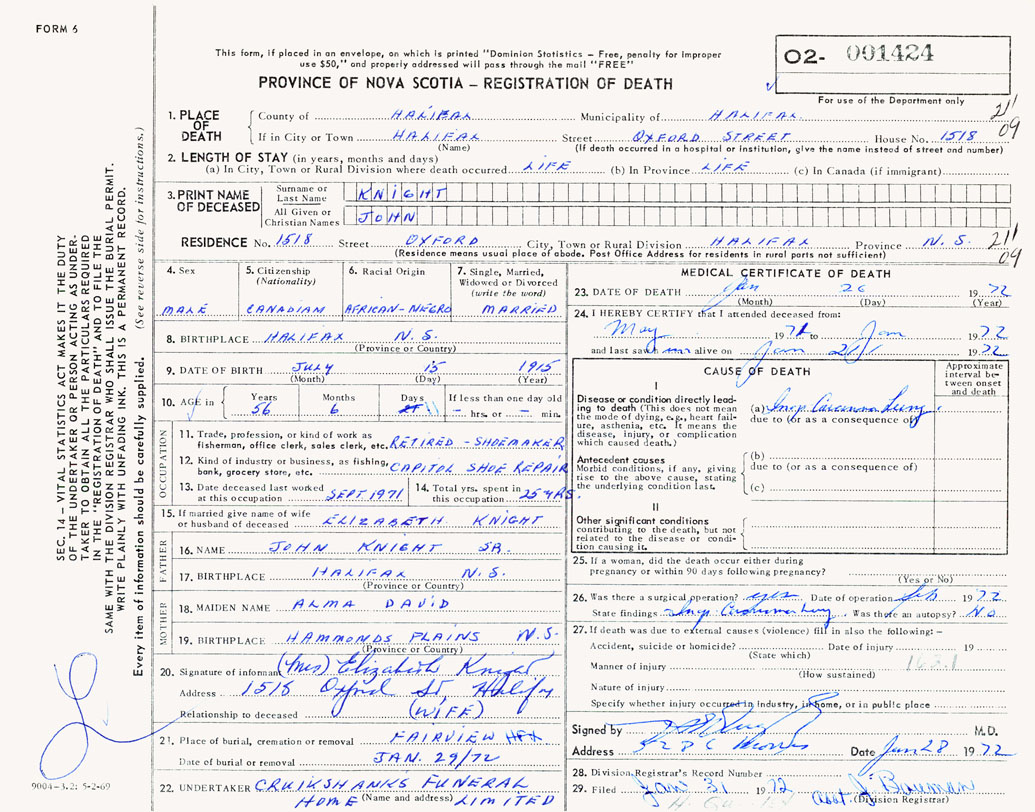 FORM 6
This form, if placed in an envelope, on which is printed "Dominion Statistics – Free, penalty for improper
use $50," and properly addressed will pass through the mail "FREE"
PROVINCE OF NOVA SCOTIA – REGISTRATION OF DEATH
02- 001424
For use of the Department only
1. PLACE OF DEATH
County of HALIFAX Municipality of HALIFAX
If in City or Town HALIFAX Street OXFORD STREET House No. 1518
(Name) (If death occurred in a hospital or institution, give the name instead of street and number)
211
09
2. LENGTH OF STAY (in years, months and days)
(a) In City, Town or Rural Division where death occurred LIFE (b) In Province LIFE (c) In Canada (if immigrant)
3. PRINT NAME OF DECEASED
Surname or Last Name KNIGHT
All Given or Christian Names JOHN
RESIDENCE No. 1518 Street OXFORD City, Town or Rural Division HALIFAX Province N.S.
(Residence means usual place of abode. Post Office Address for residents in rural parts not sufficient)
211
09
4. Sex MALE
5. Citizenship (Nationality) CANADIAN
6. Racial Origin AFRICAN-NEGRO
7. Single, Married, Widowed or Divorced (write the word) MARRIED
8. BIRTHPLACE HALIFAX N.S.
(Province or Country)
9. DATE OF BIRTH JULY 15 1915
(Month) (Day) (Year)
10. AGE in Years 56 Months 6 Days 11 If less than one day old – hrs. or – min.
OCCUPATION
11. Trade, profession, or kind of work as
fisherman, office clerk, sales clerk, etc. RETIRED - SHOEMAKER
12. Kind of industry or business, as fishing,
bank, grocery store, etc. CAPITOL SHOE REPAIR
13. Date deceased last worked
at this occupation SEPT 1971
14. Total yrs. spent in
this occupation 25 YRS.
15. If married give name of wife
or husband of deceased ELIZABETH KNIGHT
FATHER
16. NAME JOHN KNIGHT SR.
17. BIRTHPLACE HALIFAX N.S.
(Province or Country)
MOTHER
18. MAIDEN NAME ALMA DAVID
19. BIRTHPLACE HAMMONDS PLAINS N.S.
(Province or Country)
20. Signature of informant (Mrs) Elizabeth Knight
Address 1518 Oxford St, Halifax
Relationship to deceased (WIFE)
21. Place of burial, cremation or removal FAIRVIEW HFX
Date of burial or removal JAN. 29/72
22. UNDERTAKER CRUIKSHANKS FUNERAL
HOME (Name and address) LIMITED
MEDICAL CERTIFICATE OF DEATH
23. DATE OF DEATH Jan 26 1972
(Month) (Day) (Year)
24. I HEREBY CERTIFY that I attended deceased from:
May 1971 to Jan 1972
and last saw alive on Jan 1972
CAUSE OF DEATH
Approximate interval between onset and death
I
Disease or condition directly leading to death (This does not mean
the mode of dying, e.g., heart failure, asthenia, etc. It means the
disease, injury, or complication
which caused death.)
(a) Inop Carcinoma Lung
due to (or as a consequence of)
Antecedent causes
Morbid conditions, if any, giving
rise to the above cause, stating
the underlying condition last.
(b)
due to (or as a consequence of)
(c)
II
Other significant conditions
contributing to the death, but not
related to the disease or condition causing it.
25. If a woman, did the death occur either during
pregnancy or within 90 days following pregnancy?
(Yes or No)
26. Was there a surgical operation? yes Date of operation Feb 1972
State findings Inop Carcinoma Lung Was there an autopsy? No
27. If death was due to external causes (violence) fill in also the following: –
Accident, suicide or homicide? Date of injury 19
(State which)
Manner of injury 162.1
(How sustained)
Nature of injury
Specify whether injury occurred in industry, in home, or in public place
Signed by M.D.
Address Date Jan 28 1972
28. Division Registrar's Record Number
29. Filed Jan 31 1972 Asst J. Bauman
(Division Registrar)
SEC. 14 – VITAL STATISTICS ACT MAKES IT THE DUTY
OF THE UNDERTAKER OR PERSON ACTING AS UNDER-
TAKER TO OBTAIN ALL THE PARTICULARS REQUIRED
IN THE "REGISTRATION OF DEATH" AND TO FILE THE
SAME WITH THE DIVISION REGISTRAR WHO SHALL ISSUE THE BURIAL PERMIT.
WRITE PLAINLY WITH UNFADING INK. THIS IS A PERMANENT RECORD.
Every item of information should be carefully supplied. (See reverse side for instructions.)
9004–3.2: 5-2-69